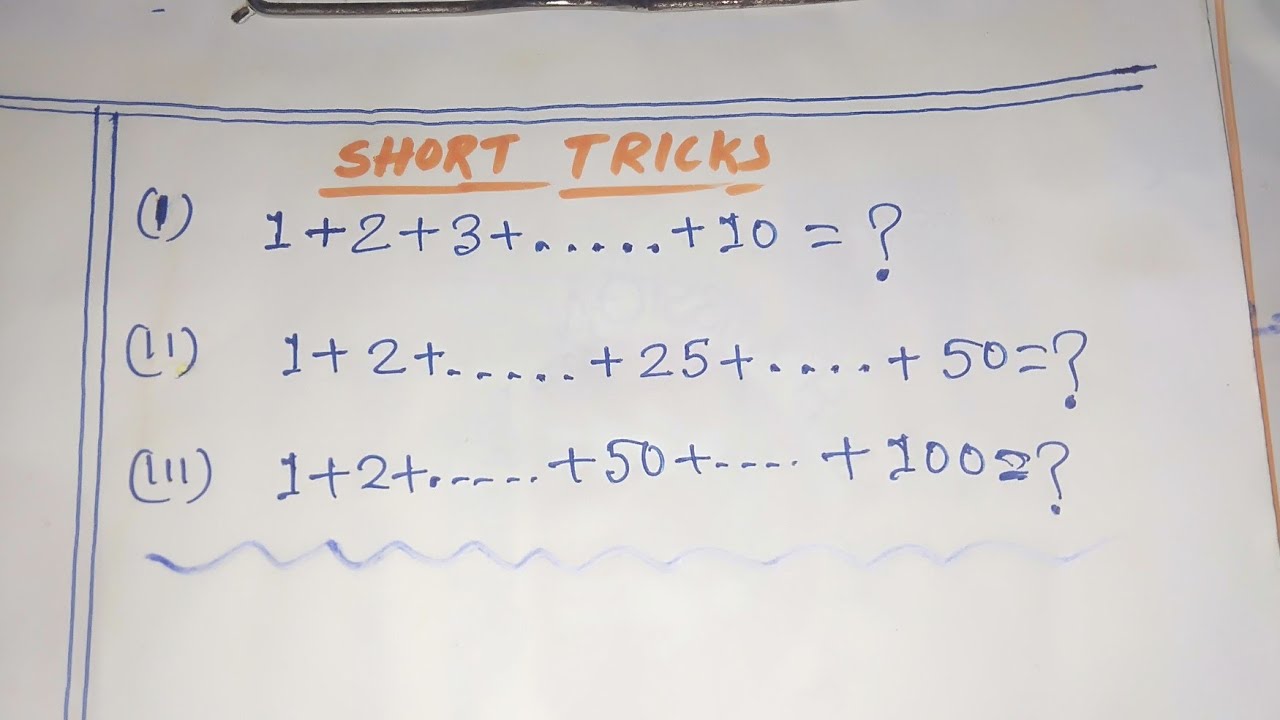 SHORT TRICKS
(1) 1+2+3+.....+10 = ?
(11) 1+2+......+25+.....+50=?
(111) 1+2+......+50+.....+100=?